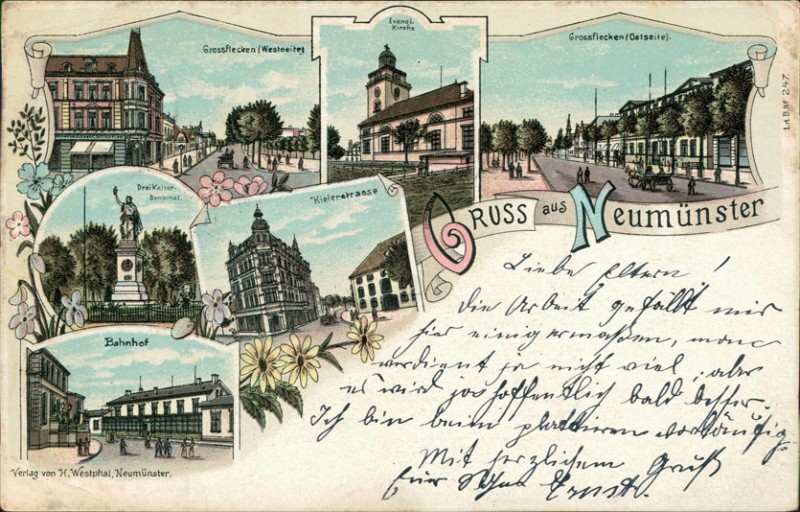 Grossflecken (Westseite)
Evangl.
Kirche
Grossflecken (Ostseite).
Lit. B. Nº 247.
Drei Kaiser-
Denkmal.
Kielerstrasse
Gruss aus Neumünster
Bahnhof
Verlag von H. Westphal, Neumünster.
Liebe Eltern!
Die Arbeit gefällt mir
hier einigermaßen, man
verdient ja nicht viel, aber
es wird ja hoffentlich bald besser.
Ich bin beim plattieren vorläufig.
Mit herzlichem Gruß
Euer Sohn Ernst.